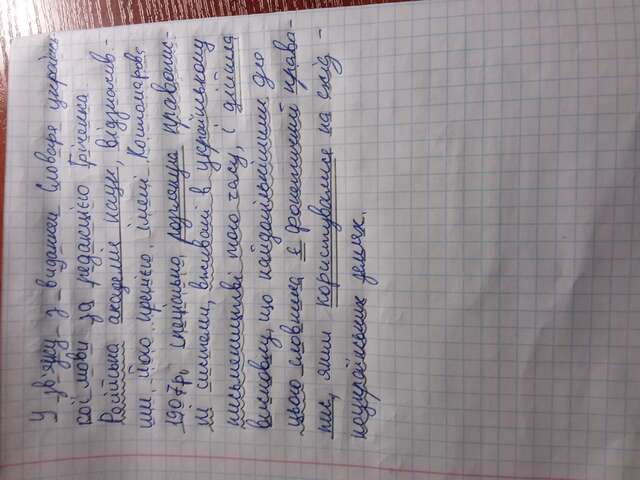 У зв'язку з виданням Словаря українсь-
кої мови за редакцією Грінченка
Російська академія наук, відзначив-
ши його премією імені Костомарова
1907р, спеціально розглянула правопис-
ні системи, вживані в українському
письменництві того часу, і дійшла
висновку, що найдоцільнішим для
цього словника є фонетичний право-
пис, яким користувалися на схід-
ноукраїнських землях.